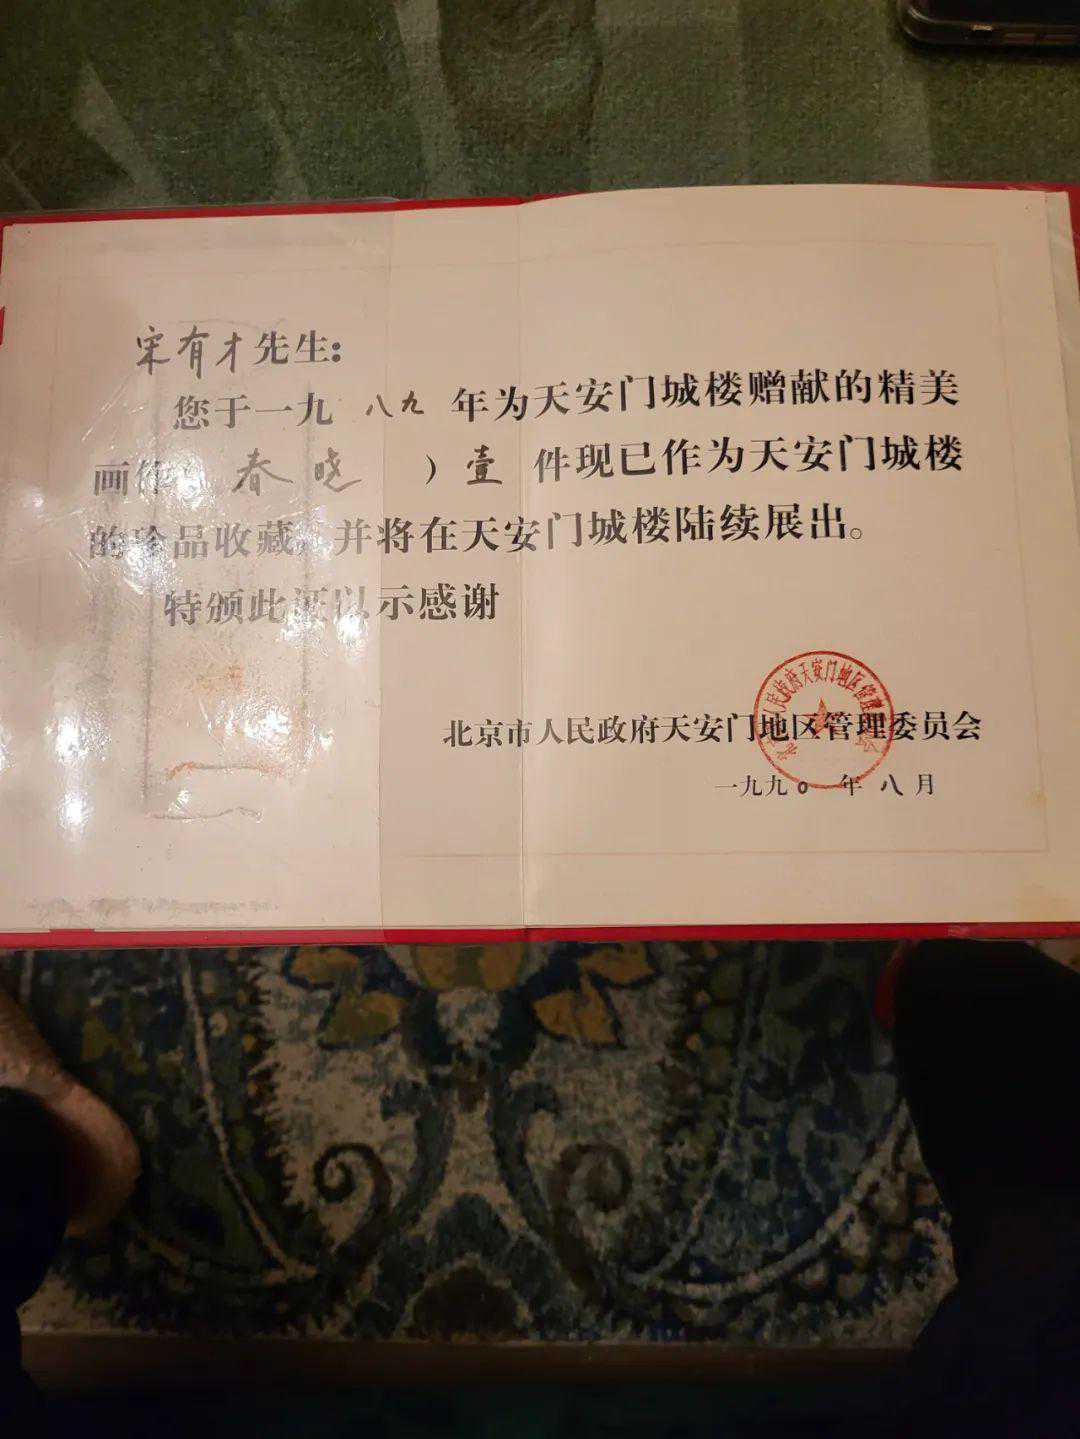 宋有才先生：
您于一九八九年为天安门城楼赠献的精美
画作（春晓）壹件现已作为天安门城楼
的珍品收藏，并将在天安门城楼陆续展出。
特颁此证以示感谢
北京市人民政府天安门地区管理委员会
一九九〇年八月